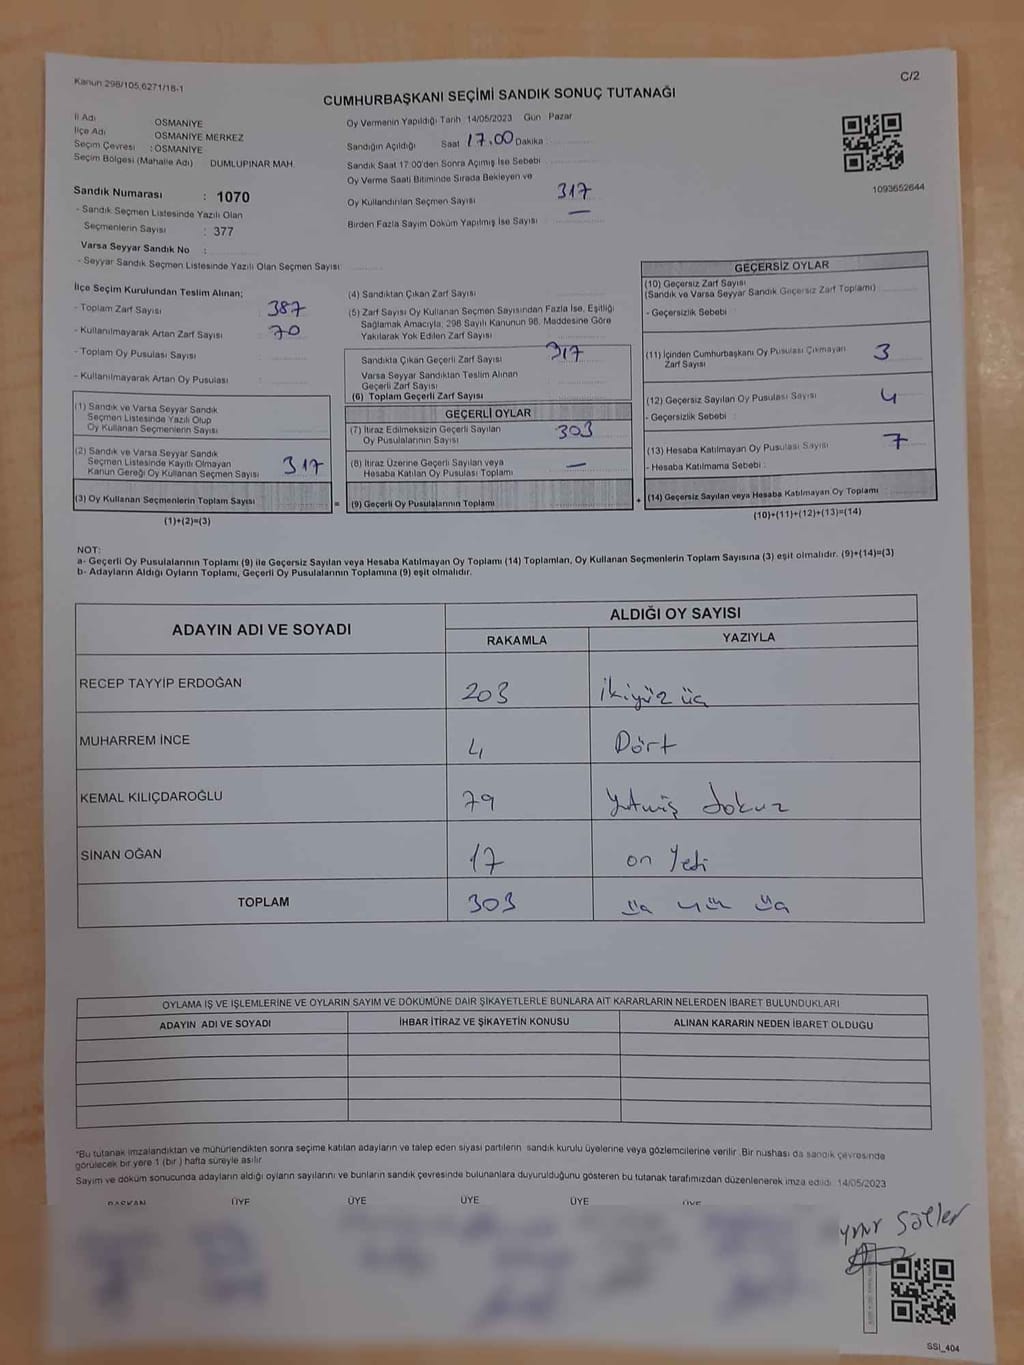 Kanun 298/105,6271/18-1
C/2
CUMHURBAŞKANI SEÇİMİ SANDIK SONUÇ TUTANAĞI
İl Adı OSMANİYE
İlçe Adı OSMANİYE MERKEZ
Seçim Çevresi : OSMANİYE
Seçim Bölgesi (Mahalle Adı) : DUMLUPINAR MAH.
Sandık Numarası : 1070
- Sandık Seçmen Listesinde Yazılı Olan
Seçmenlerin Sayısı : 377
Varsa Seyyar Sandık No :
- Seyyar Sandık Seçmen Listesinde Yazılı Olan Seçmen Sayısı:
Oy Vermenin Yapıldığı Tarih 14/05/2023 Gün Pazar
Sandığın Açıldığı Saat 17.00 Dakika :
Sandık Saat 17:00'den Sonra Açılmış İse Sebebi
Oy Verme Saati Bitiminde Sırada Bekleyen ve
Oy Kullandırılan Seçmen Sayısı 317
Birden Fazla Sayım Döküm Yapılmış İse Sayısı —
1093652644
İlçe Seçim Kurulundan Teslim Alınan;
- Toplam Zarf Sayısı : 387
- Kullanılmayarak Artan Zarf Sayısı : 70
- Toplam Oy Pusulası Sayısı :
- Kullanılmayarak Artan Oy Pusulası :
(1) Sandık ve Varsa Seyyar Sandık
Seçmen Listesinde Yazılı Olup
Oy Kullanan Seçmenlerin Sayısı
(2) Sandık ve Varsa Seyyar Sandık
Seçmen Listesinde Kayıtlı Olmayan
Kanun Gereği Oy Kullanan Seçmen Sayısı 317
(3) Oy Kullanan Seçmenlerin Toplam Sayısı
(1)+(2)=(3)
=
(4) Sandıktan Çıkan Zarf Sayısı
(5) Zarf Sayısı Oy Kullanan Seçmen Sayısından Fazla İse, Eşitliği
Sağlamak Amacıyla; 298 Sayılı Kanunun 98. Maddesine Göre
Yakılarak Yok Edilen Zarf Sayısı
Sandıkta Çıkan Geçerli Zarf Sayısı 317
Varsa Seyyar Sandıktan Teslim Alınan
Geçerli Zarf Sayısı
(6) Toplam Geçerli Zarf Sayısı
GEÇERLİ OYLAR
(7) İtiraz Edilmeksizin Geçerli Sayılan
Oy Pusulalarının Sayısı 303
(8) İtiraz Üzerine Geçerli Sayılan veya
Hesaba Katılan Oy Pusulası Toplamı —
(9) Geçerli Oy Pusulalarının Toplamı
+
GEÇERSİZ OYLAR
(10) Geçersiz Zarf Sayısı
(Sandık ve Varsa Seyyar Sandık Geçersiz Zarf Toplamı)
- Geçersizlik Sebebi :
(11) İçinden Cumhurbaşkanı Oy Pusulası Çıkmayan
Zarf Sayısı 3
(12) Geçersiz Sayılan Oy Pusulası Sayısı 4
- Geçersizlik Sebebi :
(13) Hesaba Katılmayan Oy Pusulası Sayısı 7
- Hesaba Katılmama Sebebi :
(14) Geçersiz Sayılan veya Hesaba Katılmayan Oy Toplamı
(10)+(11)+(12)+(13)=(14)
NOT:
a- Geçerli Oy Pusulalarının Toplamı (9) ile Geçersiz Sayılan veya Hesaba Katılmayan Oy Toplamı (14) Toplamları, Oy Kullanan Seçmenlerin Toplam Sayısına (3) eşit olmalıdır. (9)+(14)=(3)
b- Adayların Aldığı Oyların Toplamı, Geçerli Oy Pusulalarının Toplamına (9) eşit olmalıdır.
ADAYIN ADI VE SOYADI
ALDIĞI OY SAYISI
RAKAMLA YAZIYLA
RECEP TAYYİP ERDOĞAN 203 İkiyüz üç
MUHARREM İNCE 4 Dört
KEMAL KILIÇDAROĞLU 79 Yetmiş dokuz
SİNAN OĞAN 17 on Yedi
TOPLAM 303 üç yüz üç
OYLAMA İŞ VE İŞLEMLERİNE VE OYLARIN SAYIM VE DÖKÜMÜNE DAİR ŞİKAYETLERLE BUNLARA AİT KARARLARIN NELERDEN İBARET BULUNDUKLARI
ADAYIN ADI VE SOYADI İHBAR İTİRAZ VE ŞİKAYETİN KONUSU ALINAN KARARIN NEDEN İBARET OLDUĞU
*Bu tutanak imzalandıktan ve mühürlendikten sonra seçime katılan adayların ve talep eden siyasi partilerin sandık kurulu üyelerine veya gözlemcilerine verilir. Bir nushası da sandık çevresinde
görülecek bir yere 1 (bir ) hafta süreyle asılır.
Sayım ve döküm sonucunda adayların aldığı oyların sayılarını ve bunların sandık çevresinde bulunanlara duyurulduğunu gösteren bu tutanak tarafımızdan düzenlenerek imza edildi. 14/05/2023
BAŞKAN ÜYE ÜYE ÜYE ÜYE ÜYE
SSI_404